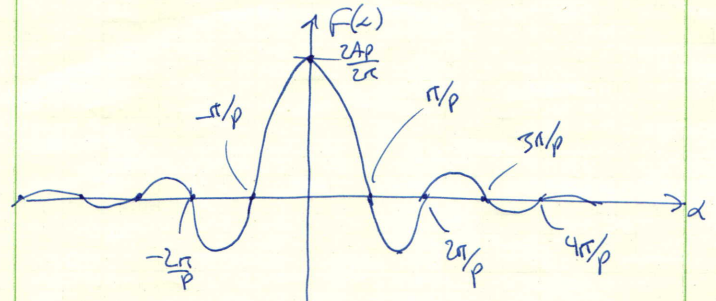 F(α)
2Ap/2π
-π/p
π/p
3π/p
-2π/p
2π/p
4π/p
α